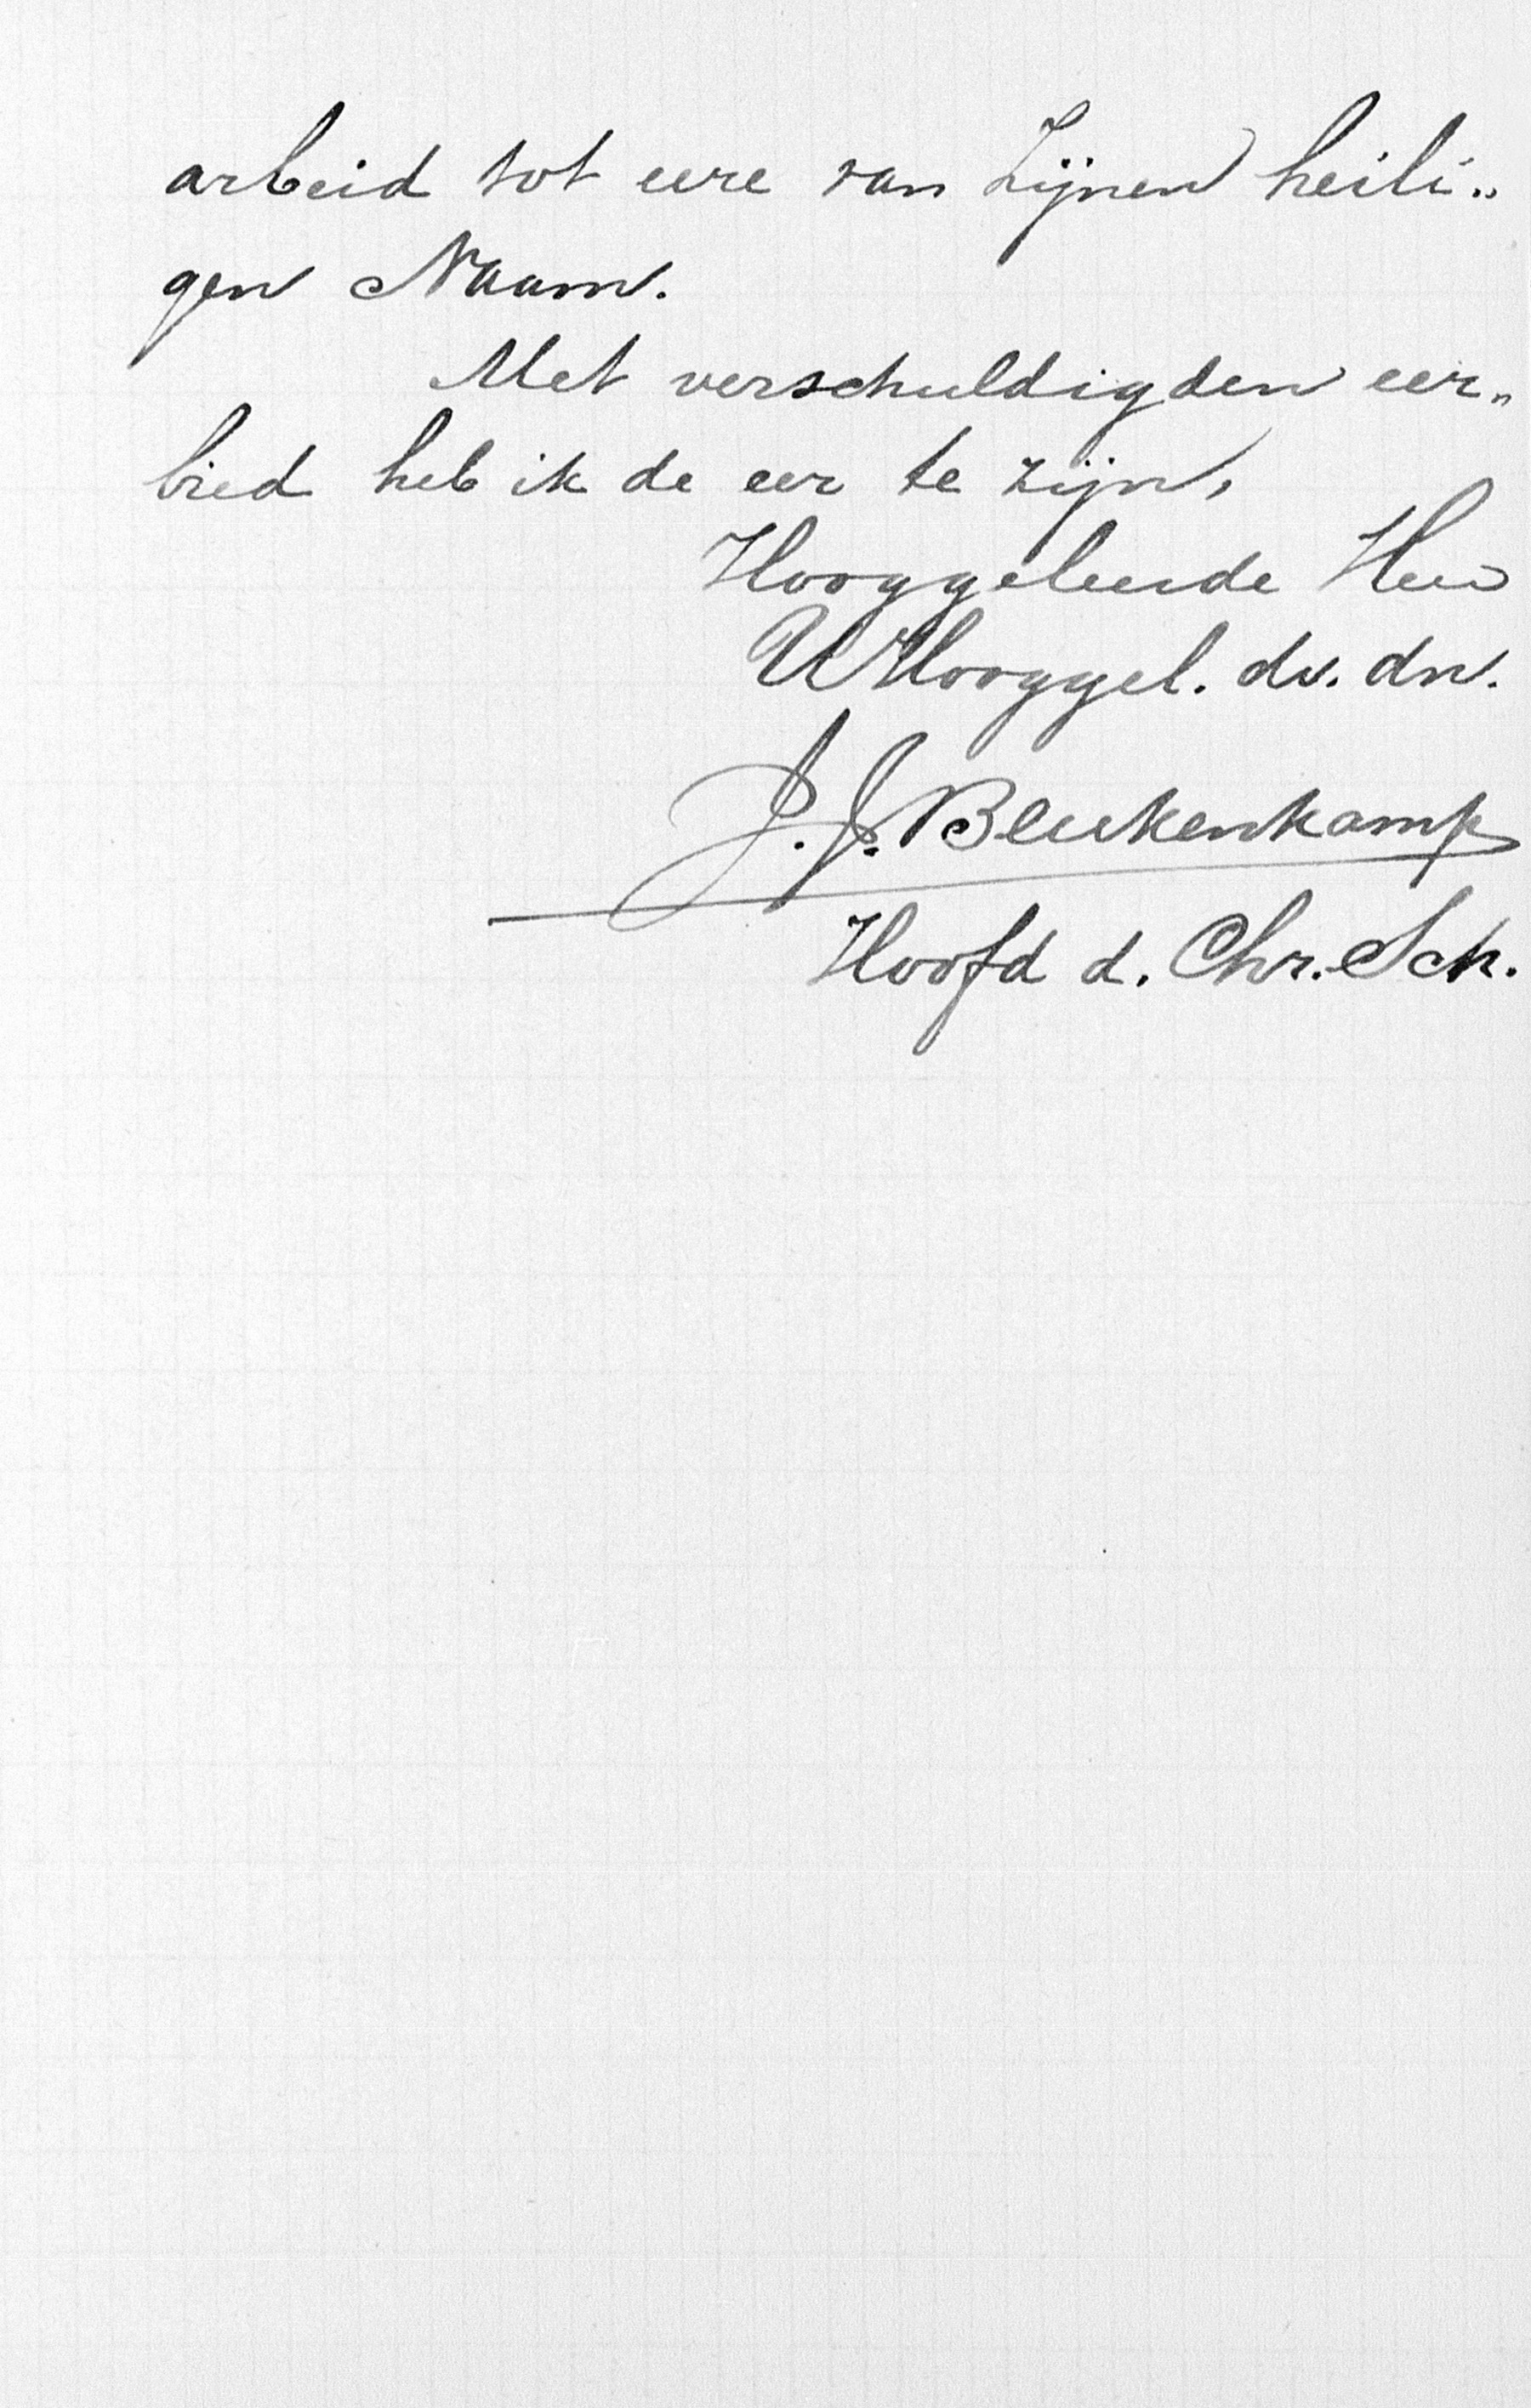 arbeid tot eere van Zijnen heili„
gen Naam.
Met verschuldigden eer„
bied heb ik de eer te zijn,
Hooggeleerde Heer
UHooggel. dv. dn.
J. J. Beukenkamp
Hoofd d. Chr. Sch.